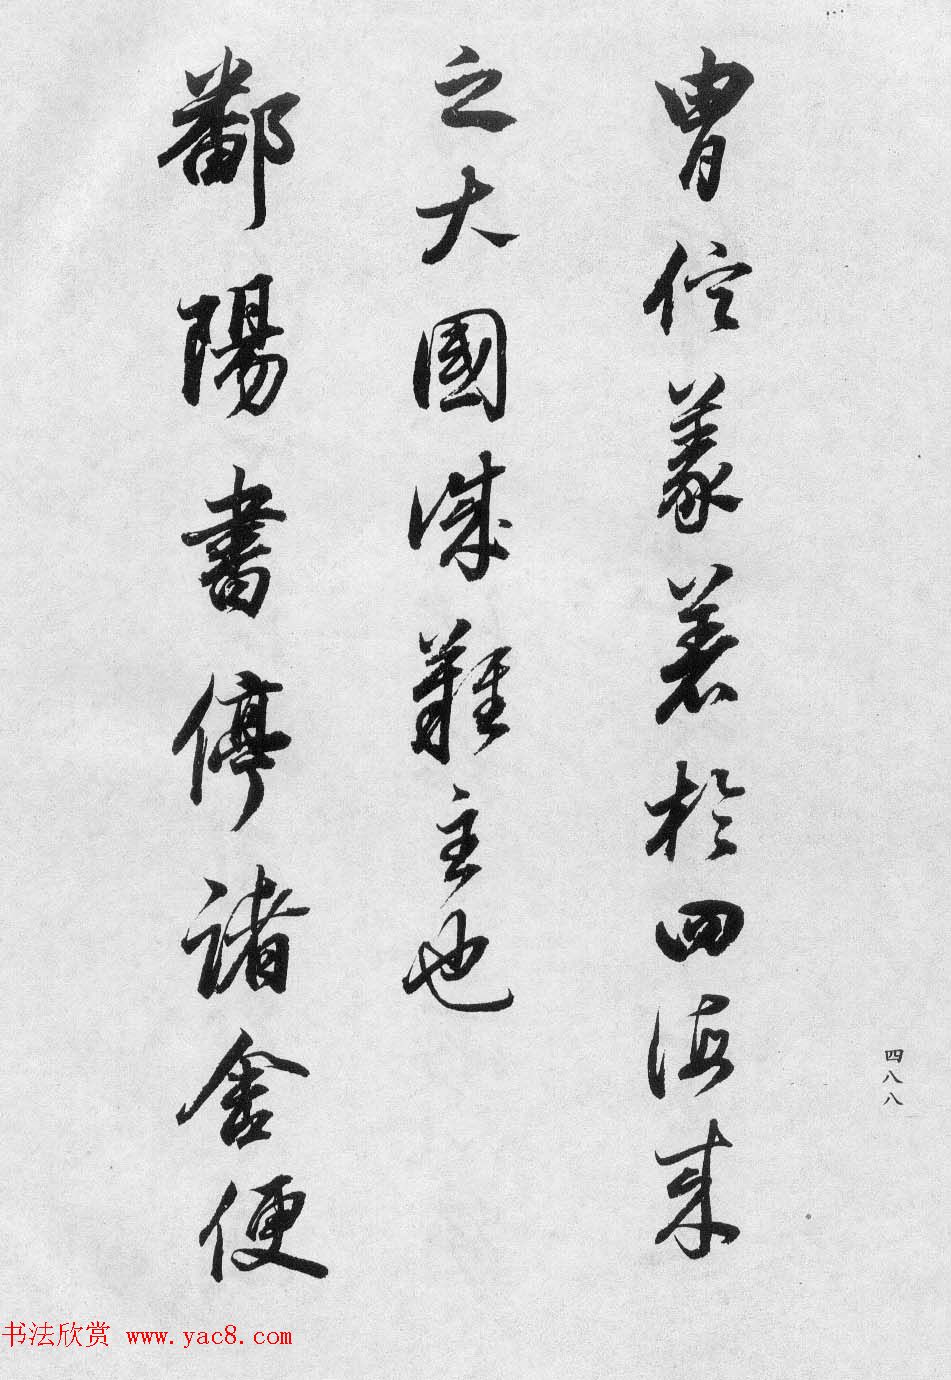 胄信義著於四海來
之大國誠難主也
鄱陽書停諸舍便
四八八
书法欣赏 www.yac8.com